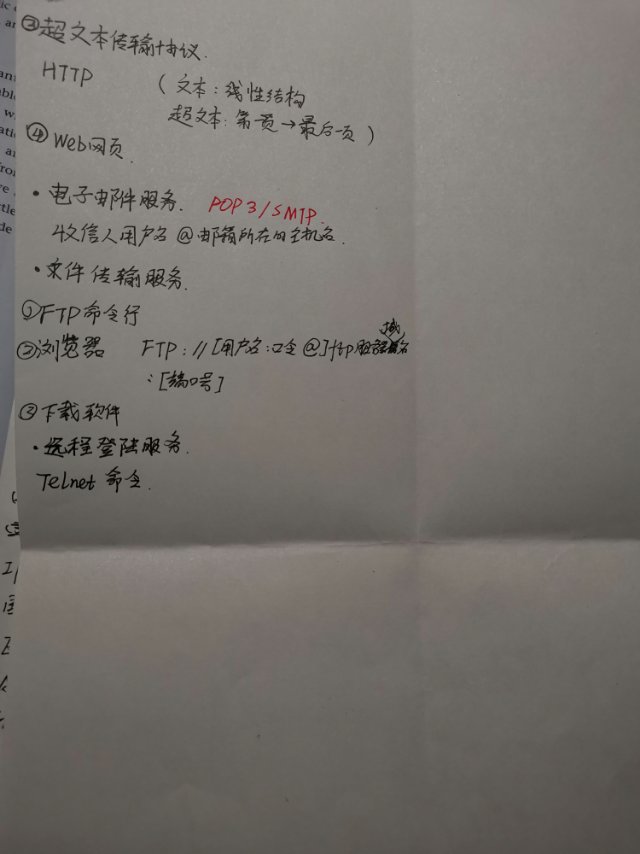 ③超文本传输协议.
HTTP （文本：线性结构
超文本：第一页→最后一页）
④Web网页.
·电子邮件服务. POP3/SMTP.
收信人用户名@邮箱所在的主机名.
·文件传输服务.
①FTP命令行
②浏览器 FTP：//[用户名：口令@]ftp服务器域名
：[端口号]
③下载软件
·远程登陆服务.
Telnet命令.